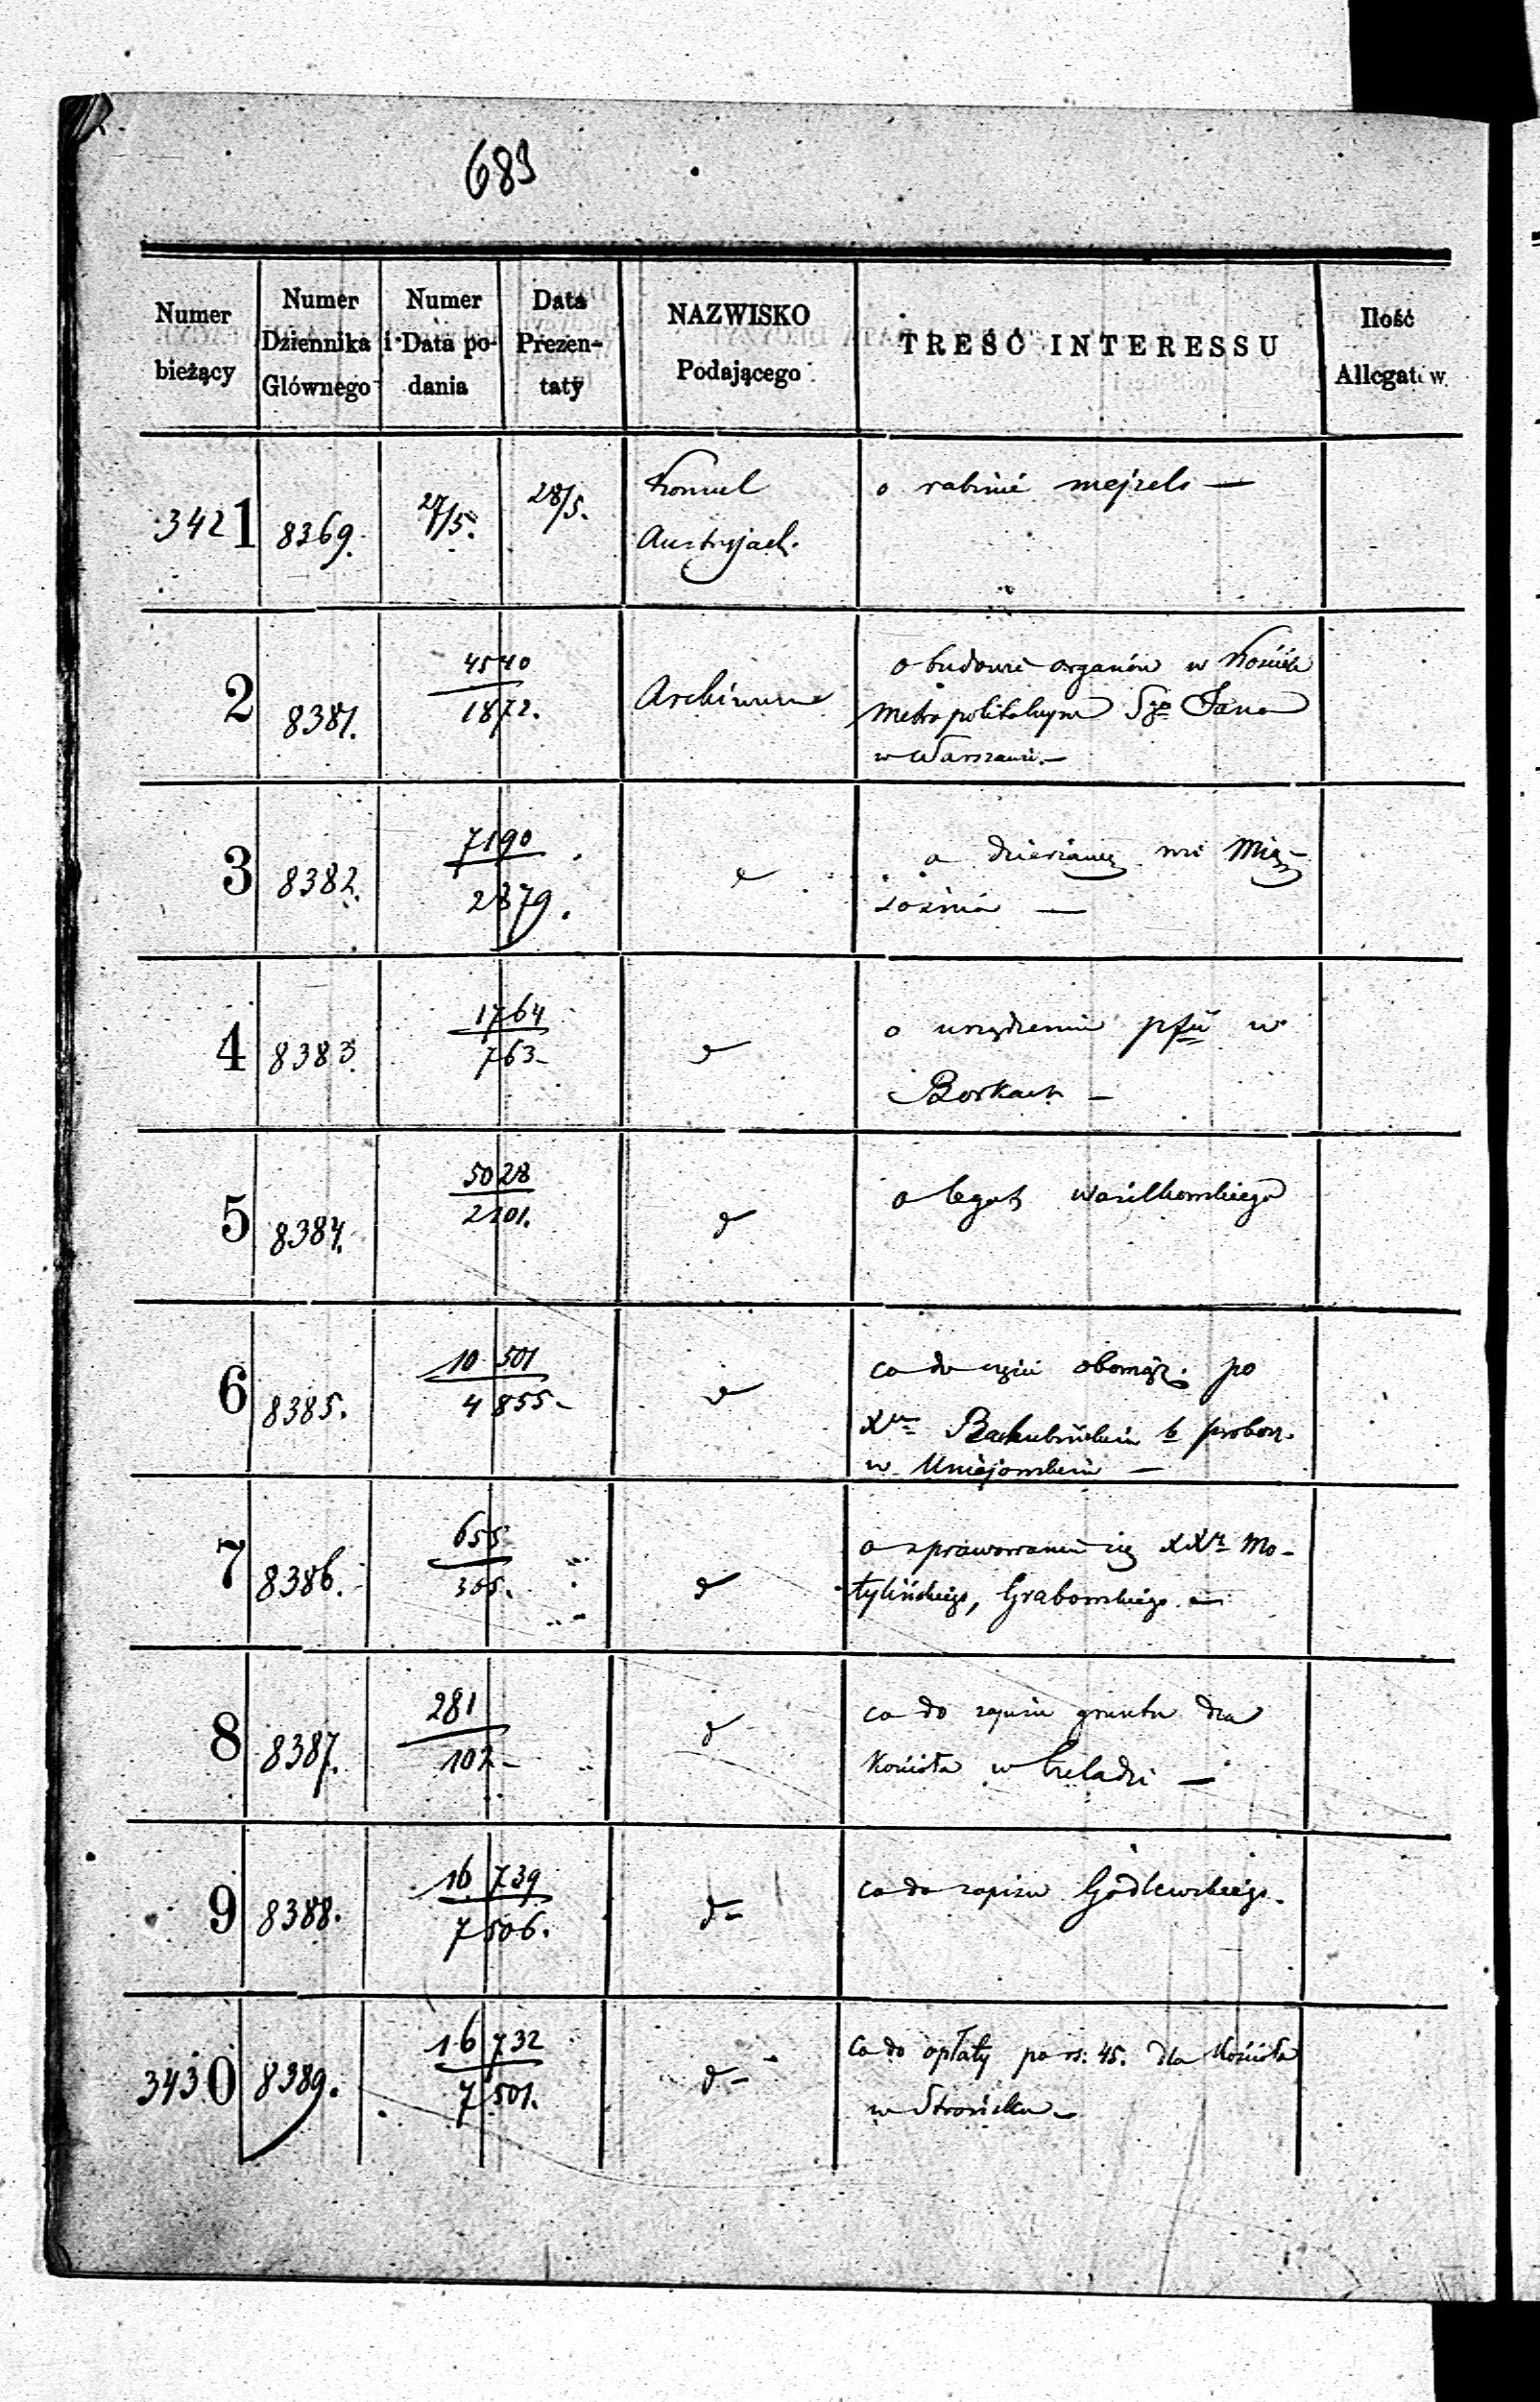 683
Numer bieżący
Numer Dziennika Głównego
Numer i Data podania
Data Prezentaty
NAZWISKO Podającego
TREŚĆ INTERESSU
Ilość Allegatów
3421 8369. 27/5. 28/5. Konsul o rabinie mejzels —
Austryjack.
2 8381. 4540 / 1872. Archiwum o budowie organów w Kościele
Metropolitalnym Sgo Jana
w Warszawie. —
3 8382. 7190 / 2879. d o dzierżawę wsi
4 8383. 1764 / 763 - d o urządzeniu pfii w
Borkach —
5 8384. 5028 / 2101. d o legat Wasilkowskiego
6 8385. 10 501 / 4 855 - d co do obowiąz. po
Xu b probos.
w Uniejowskiem —
7 8386. 655 / 305. d o sprawowaniu się XXy Mo-
tylińskiego, Grabowskiego —
8 8387. 281 / 102 - d co do zapisu gruntu dla
Kościoła w Czeladzi —
9 8388. 16 739 / 7 506. d - co do zapisu Godlewskiego.
3430 8389. 16 732 / 7 501. d - co do opłaty po rs: 45. dla Kościoła
w